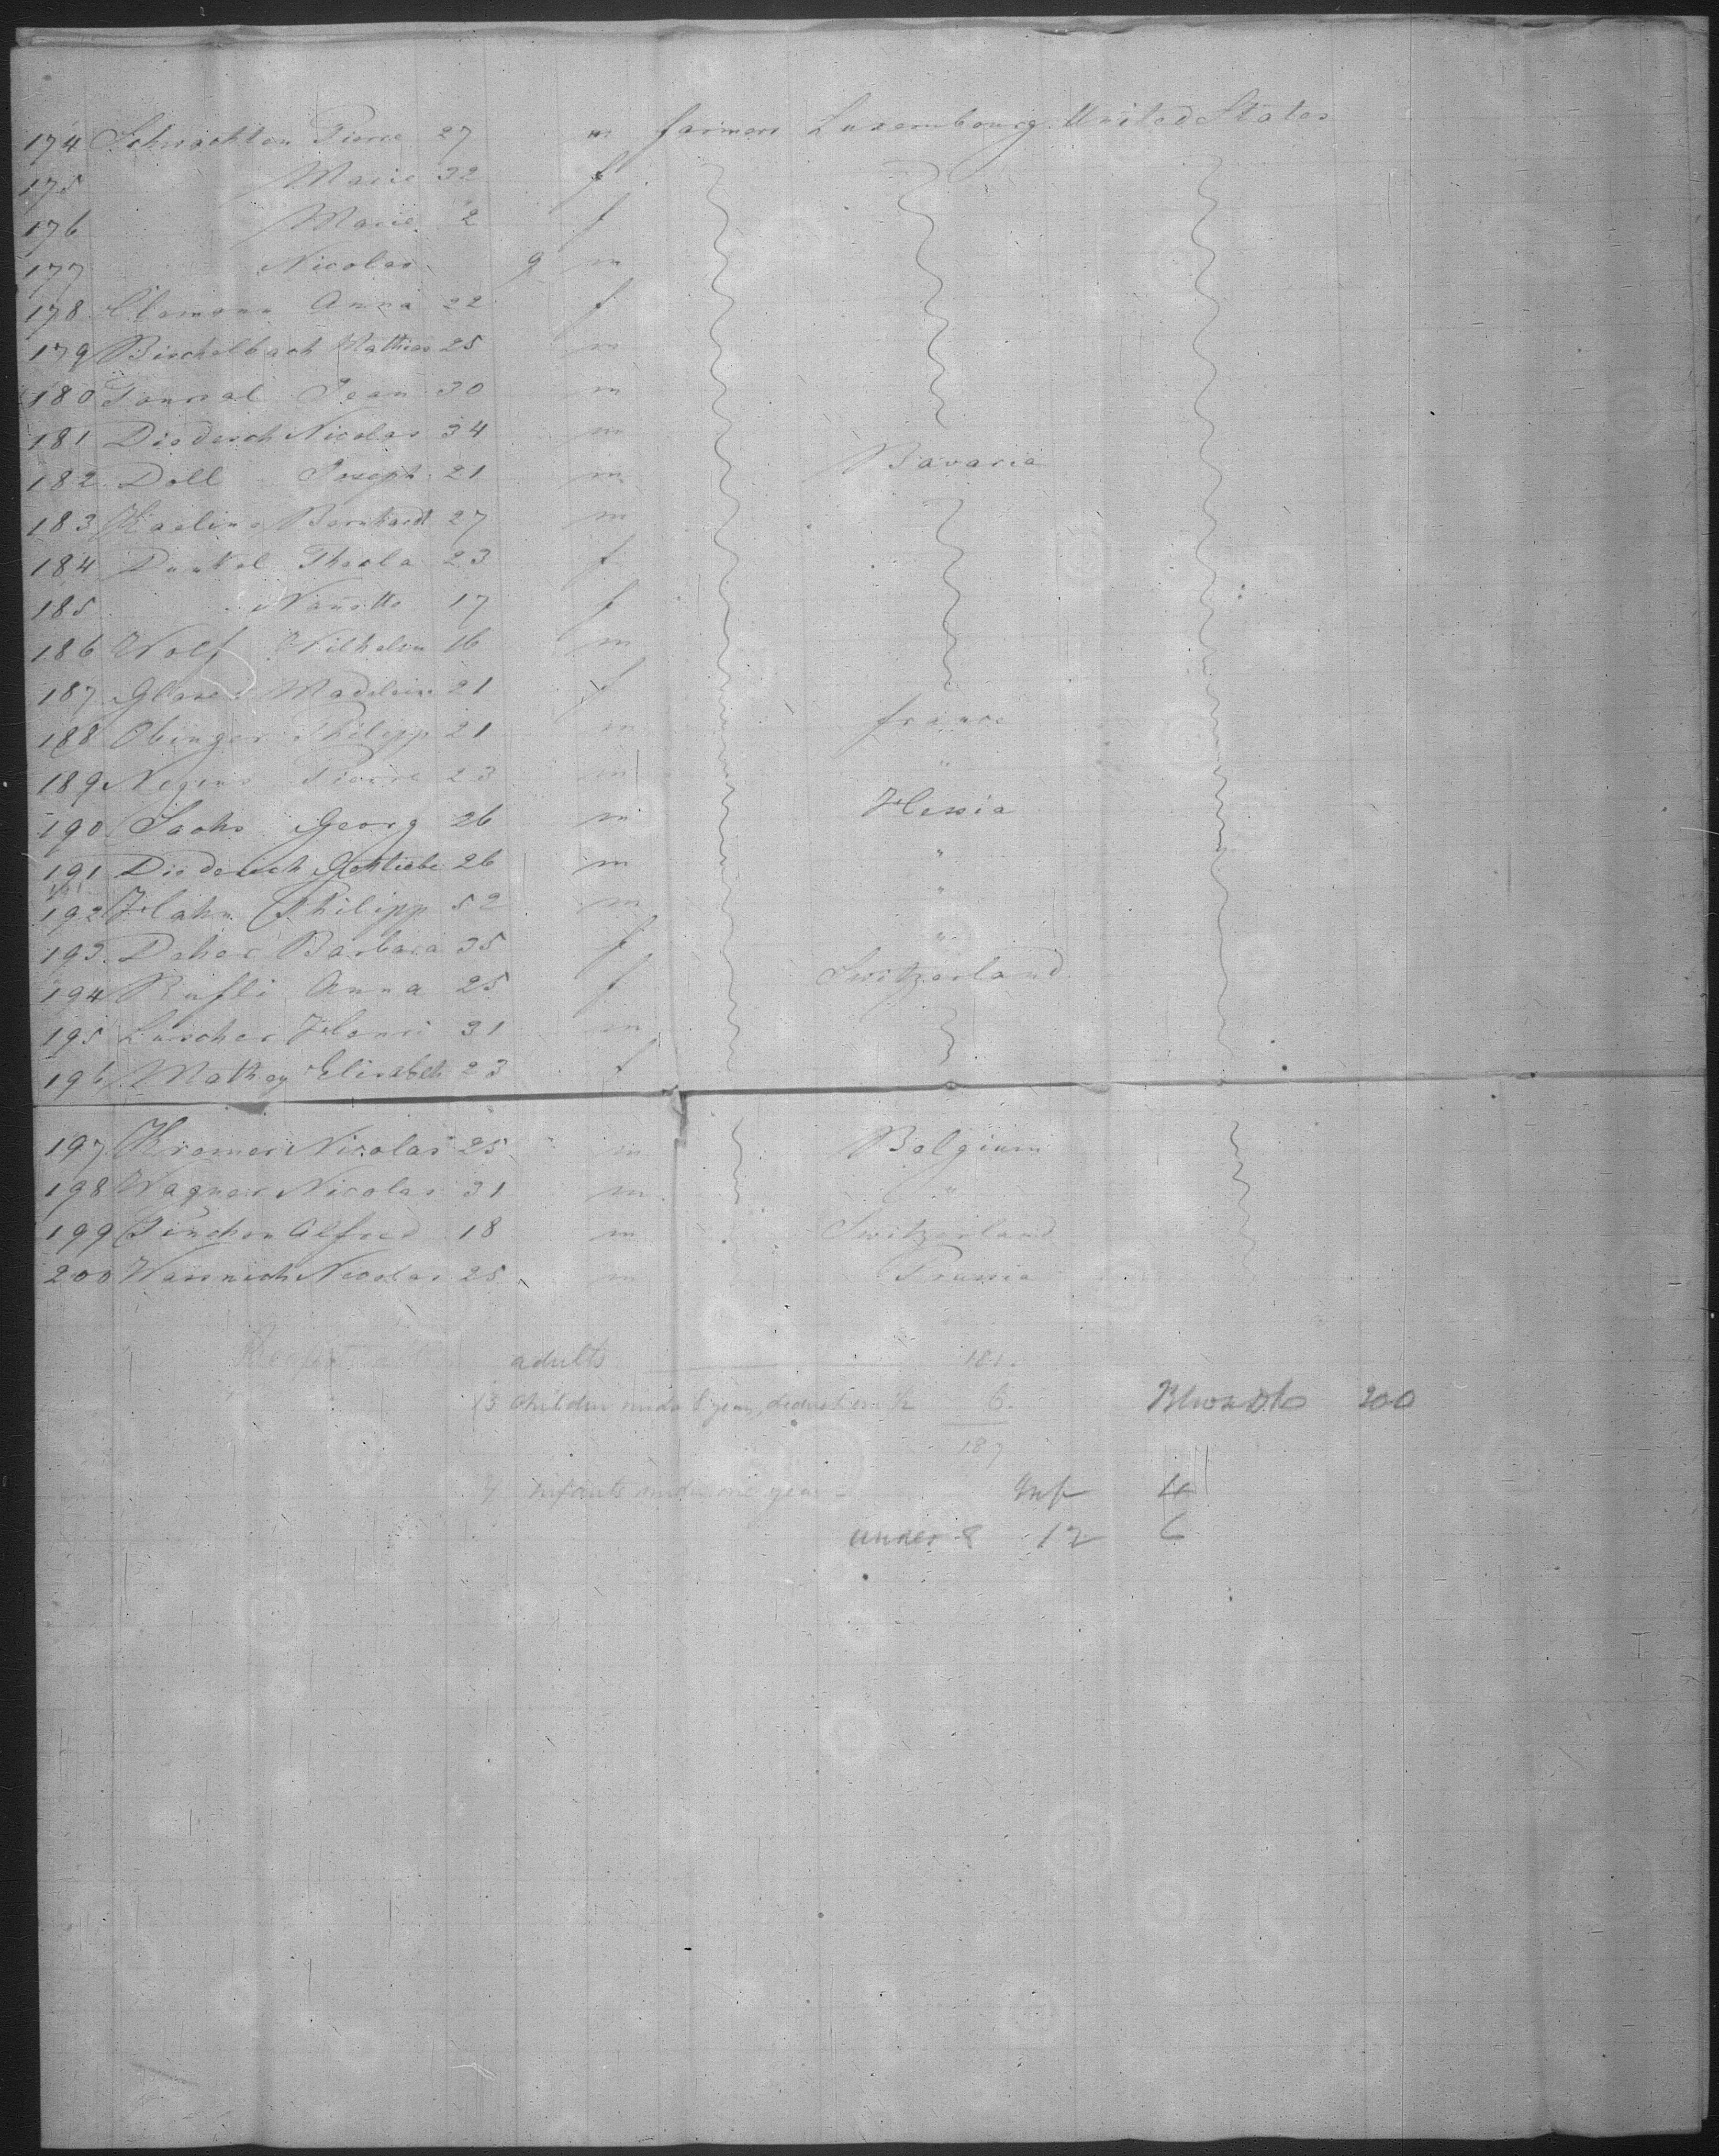 174 Schrachten Pierre 27 m farmers Luxembourg United States
175 Marie 32 f
176 Marie 2 f
177 Nicolas 9 m
178 Anna 22 f
179 Bischelbach Mathias 25 m
180 Jean 30 m
181 Diederch Nicolas 34 m
182 Doll Joseph 21 m Bavaria
183 Bernhard 27 m
184 Dunkel Thecla 23 f
185 Nanette 17 f
186 Wolf Wilhelm 16 m
187 Glaser Madeleine 21 f
188 Obinger Philipp 21 m france
189 Pierre 23 m "
190 Sachs Georg 26 m Hessia
191 Diederich Gottliebe 26 m "
192 Hahn Philipp 52 m "
193 Daher Barbara 35 f "
194 Rufli Anna 25 f Switzerland
195 Luscher Henri 31 m
196 Mathey Elisabeth 23 f
197 Kremer Nicolas 25 m Belgium
198 Wagner Nicolas 31 m "
199 Alfred 18 m Switzerland
200 Nicolas 25 m Prussia
adults 181.
13 children under 8 years, 6. 200
187
4 infants under one year Inf 4
under 8 12 6